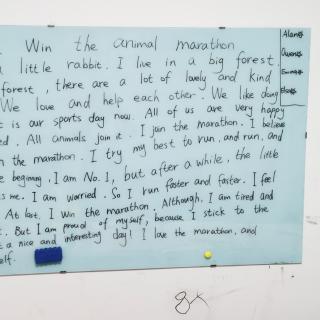 Win the animal marathon
little rabbit. I live in a big forest.
forest, there are a lot of lovely and kind
We love and help each other. We like doing
is our sports day now. All of us are very happy
. All animals join it. I join the marathon. I believe
the marathon. I try my best to run, and run, and
beginning, I am No.1, but after a while, the little
me. I am worried. So I run faster and faster. I feel
. At last, I win the marathon. Although, I am tired and
. But I am proud of myself, because I stick to the
a nice and interesting day! I love the marathon, and
Alan